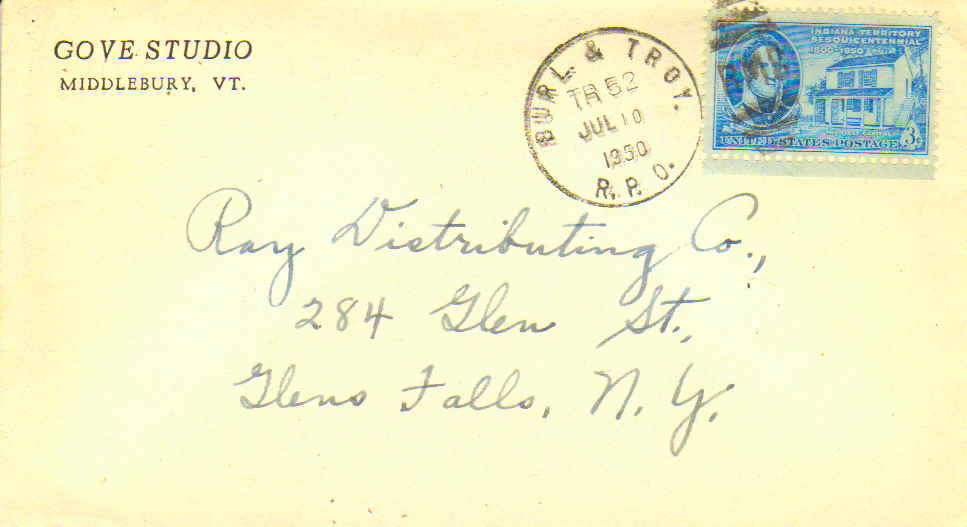 GOVE STUDIO
MIDDLEBURY, VT.
BURL. & TROY.
TR 52
JUL 10
1950
R. P. O.
INDIANA TERRITORY
SESQUICENTENNIAL
1800-1950
UNITED STATES POSTAGE 3¢
Ray Distributing Co.,
284 Glen St.,
Glens Falls, N. Y.